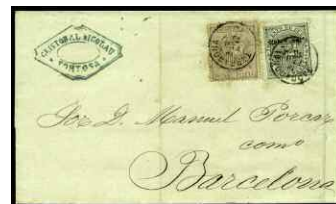 CRISTOBAL NICOLAU
TORTOSA
Sor D. Manuel Porcar
como
Barcelona